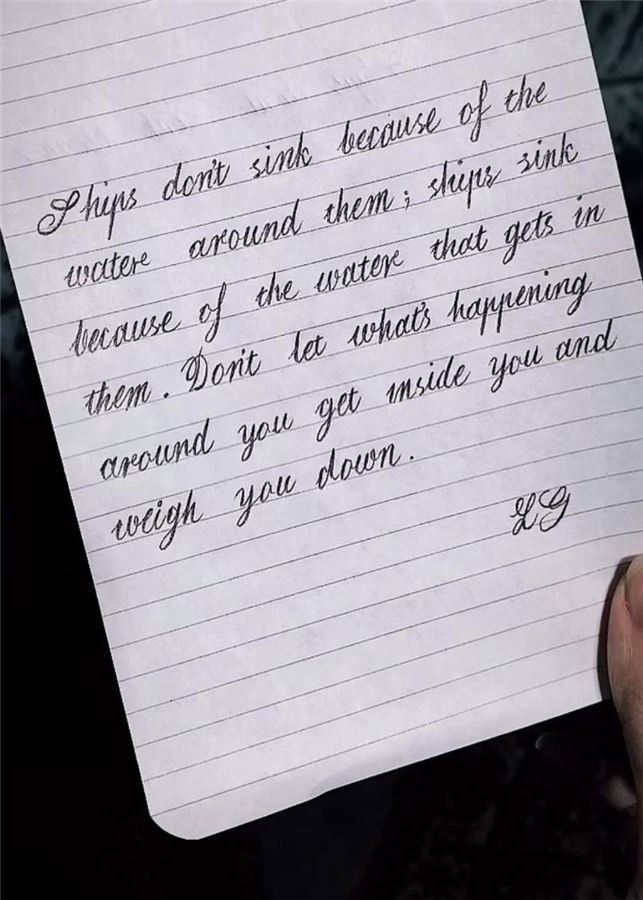 Ships don't sink because of the
water around them; ships sink
because of the water that gets in
them. Don't let what's happening
around you get inside you and
weigh you down.
LG